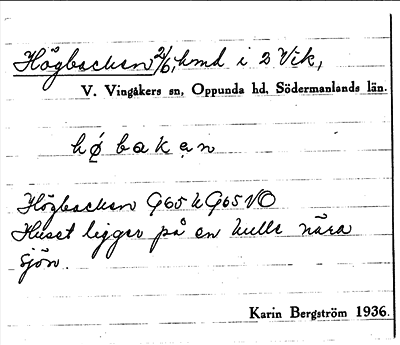 Högbacken 2/6, hmd i 2 Vik,
V. Vingåkers sn, Oppunda hd, Södermanlands län.
hø̨bakạn
Högbacken G65 h G65 VO
Huset ligger på en kulle nära
sjön.
Karin Bergström 1936.